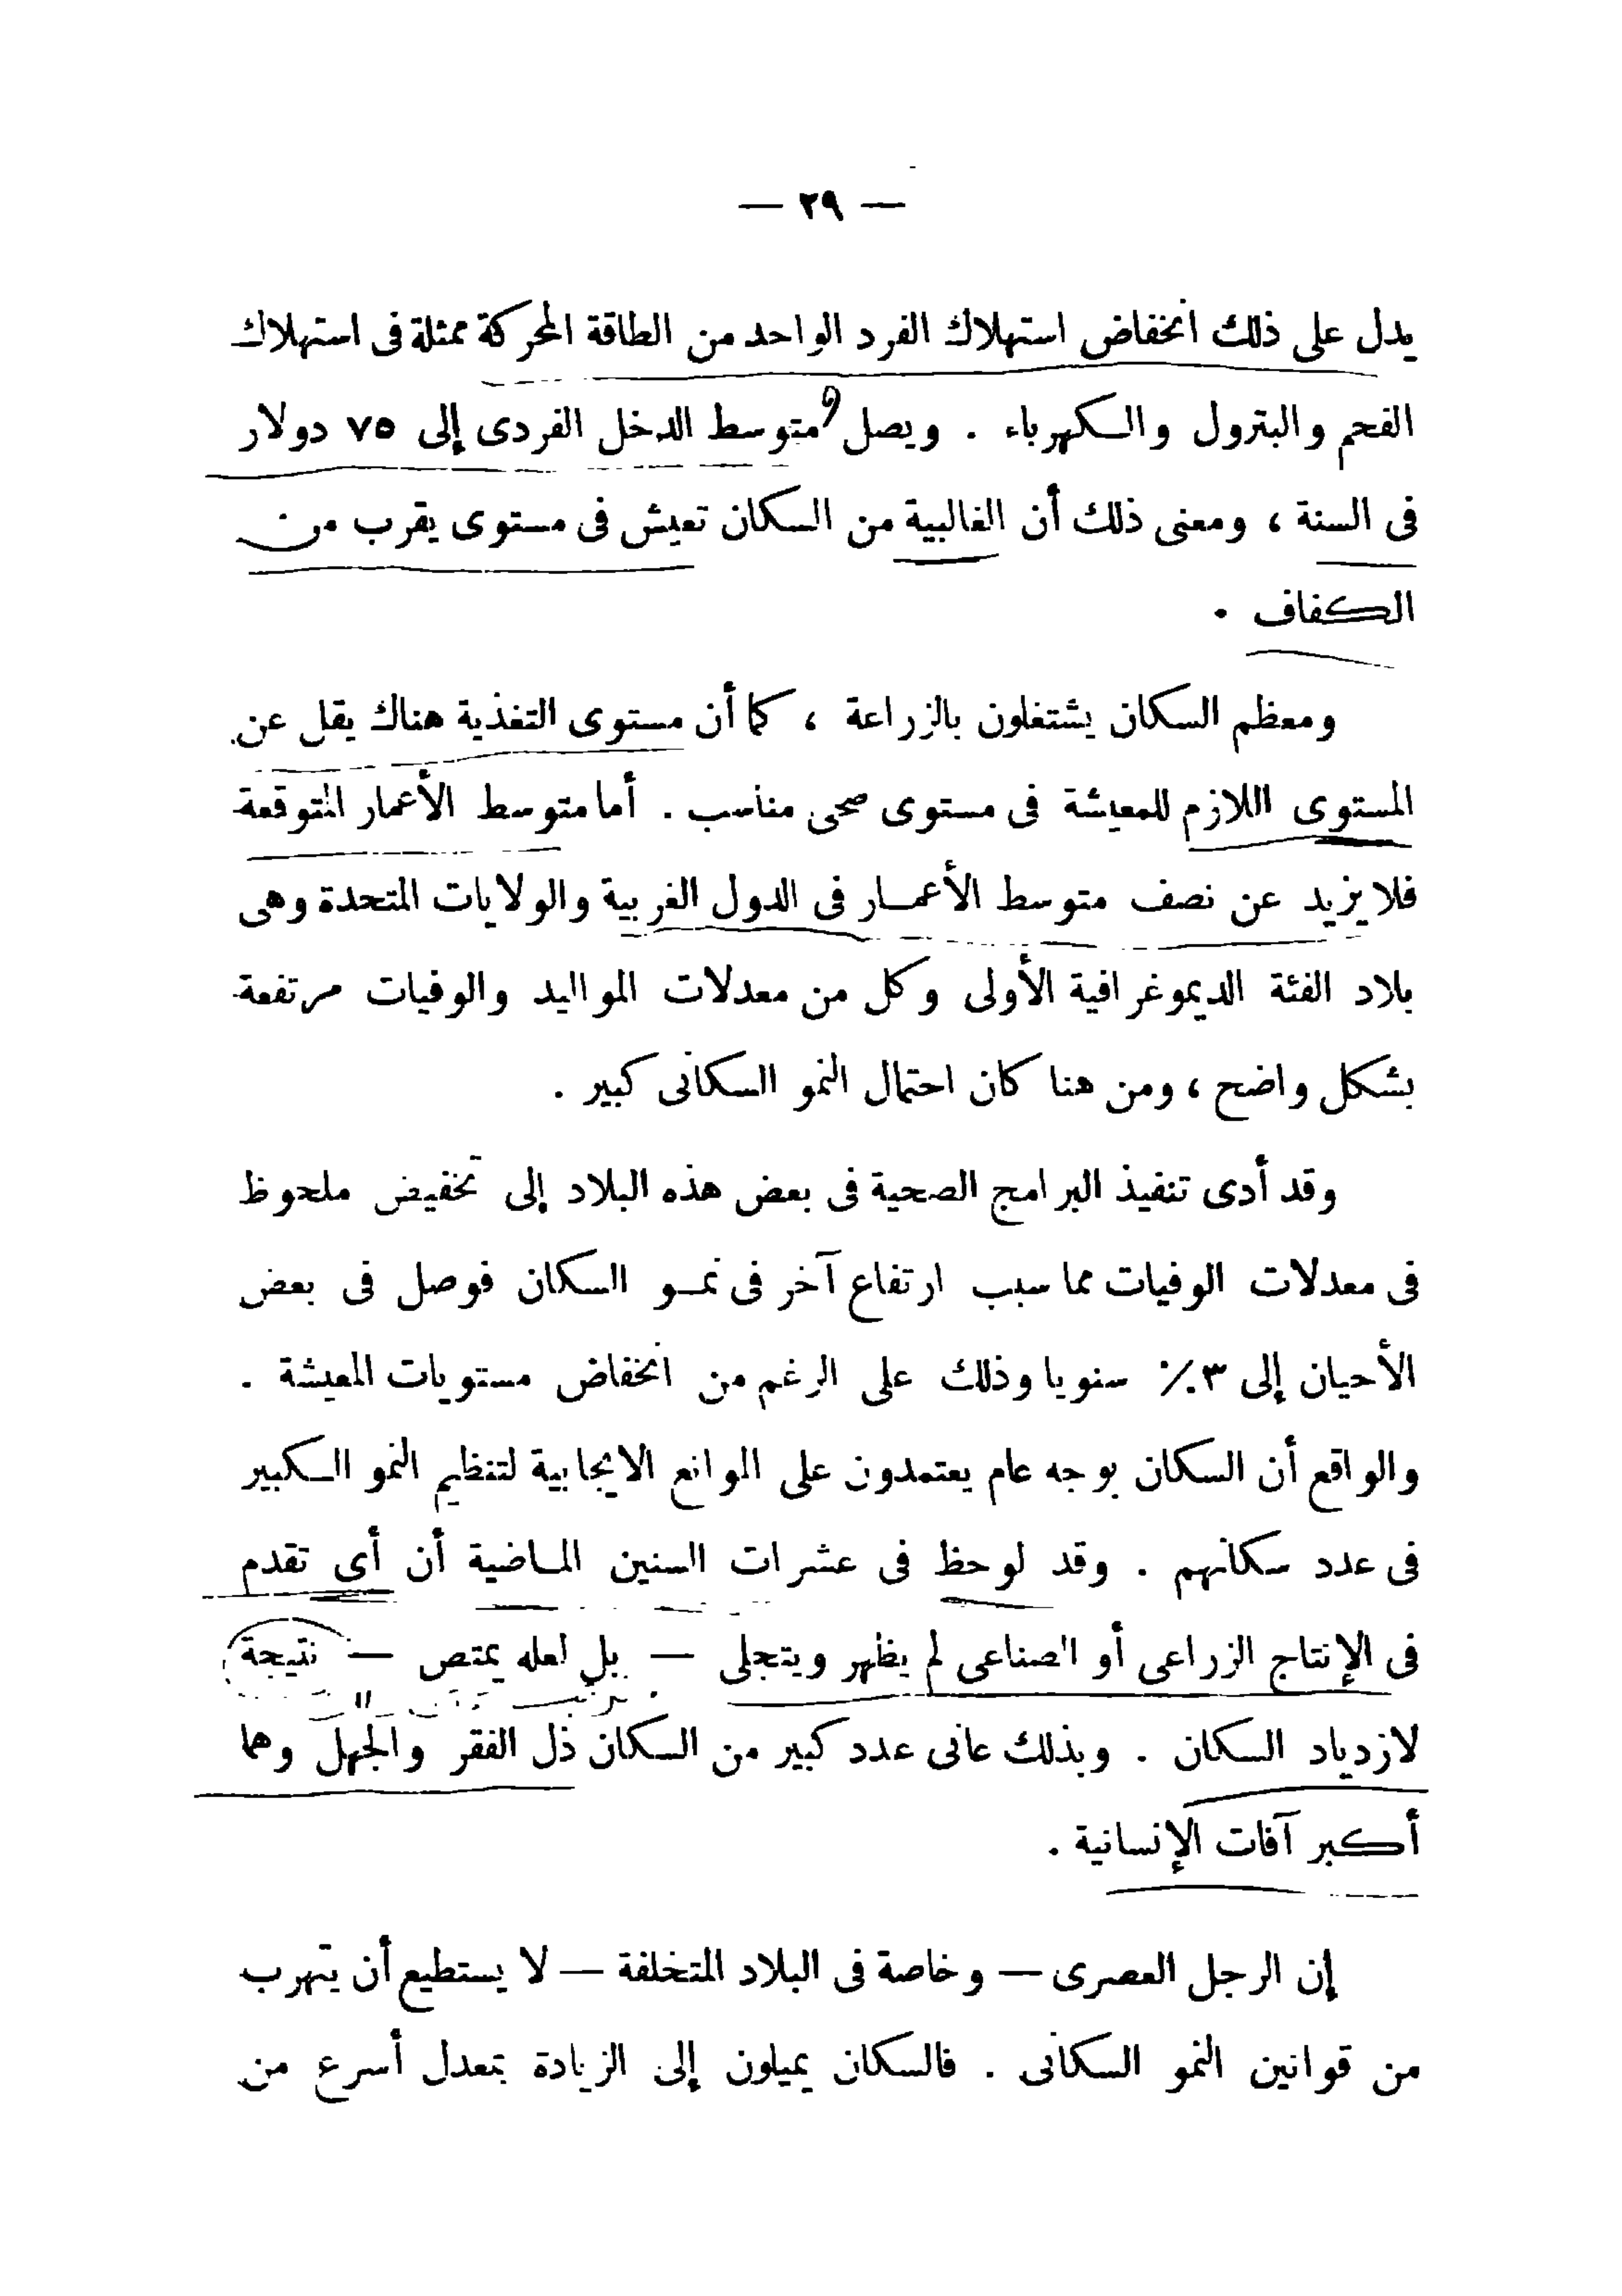 — ٢٩ —
يدل على ذلك انخفاض استهلاك الفرد الواحد من الطاقة المحركة ممثلة فى استهلاك
الفحم والبترول والكهرباء . ويصل متوسط الدخل الفردى إلى ٧٥ دولار
فى السنة ، ومعنى ذلك أن الغالبية من السكان تعيش فى مستوى يقرب من
الكفاف .
ومعظم السكان يشتغلون بالزراعة ، كما أن مستوى التغذية هناك يقل عن
المستوى اللازم للمعيشة فى مستوى صحى مناسب . أما متوسط الأعمار المتوقعة
فلا يزيد عن نصف متوسط الأعمار فى الدول الغربية والولايات المتحدة وهى
بلاد الفئة الديموغرافية الأولى وكل من معدلات المواليد والوفيات مرتفعة
بشكل واضح ، ومن هنا كان احتمال النمو السكانى كبير .
وقد أدى تنفيذ البرامج الصحية فى بعض هذه البلاد إلى تخفيض ملحوظ
فى معدلات الوفيات مما سبب ارتفاع آخر فى نمو السكان فوصل فى بعض
الأحيان إلى ٣٪ سنويا وذلك على الرغم من انخفاض مستويات المعيشة .
والواقع أن السكان بوجه عام يعتمدون على الموانع الايجابية لتنظيم النمو الكبير
فى عدد سكانهم . وقد لوحظ فى عشرات السنين الماضية أن أى تقدم
فى الإنتاج الزراعى أو الصناعى لم يظهر ويتجلى — بل لعله يمتص — نتيجة
لازدياد السكان . وبذلك عانى عدد كبير من السكان ذل الفقر والجهل وهما
أكبر آفات الإنسانية .
إن الرجل العصرى — وخاصة فى البلاد المتخلفة — لا يستطيع أن يتهرب
من قوانين النمو السكانى . فالسكان يميلون إلى الزيادة بمعدل أسرع من